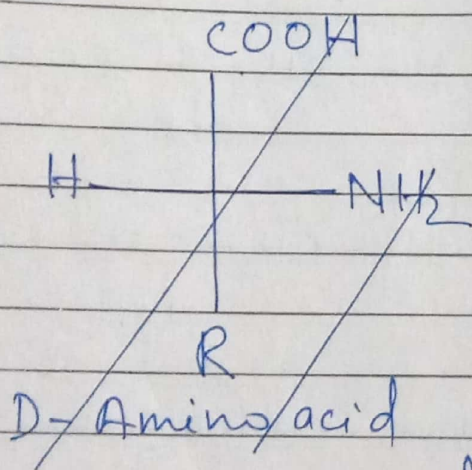 COOH
H NH2
R
D-Amino acid